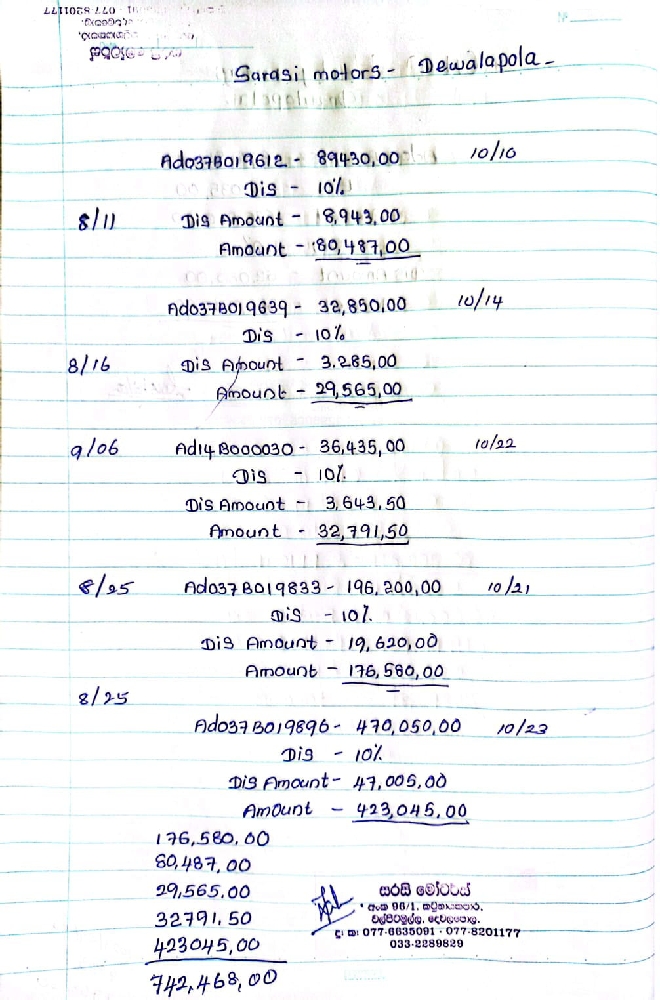 Sarasi motors - Dewalapola -
Ad037B019612 - 89430,00 10/10
Dis - 10%
8/11 Dis Amount - 8,943.00
Amount - 80,487,00
Ad037B019639 - 32,850,00 10/14
Dis - 10%
8/16 Dis Amount - 3.285,00
Amount - 29,565,00
9/06 Ad14B000030 - 36,435,00 10/22
Dis - 10%
Dis Amount - 3,643,50
Amount - 32,791,50
8/25 Ad037B019833 - 196,200,00 10/21
Dis - 10%
Dis Amount - 19,620,00
Amount - 176,580,00
8/25
Ad037B019896 - 470,050,00 10/23
Dis - 10%
Dis Amount - 47,005,00
Amount - 423,045,00
176,580,00
80,487,00
29,565.00
32791.50
423045,00
742,468,00
සරසි මෝටර්ස්
අංක 96/1,
දෙවලපොල.
දු. ක: 077-6635091 - 077-8201177
033-2289829